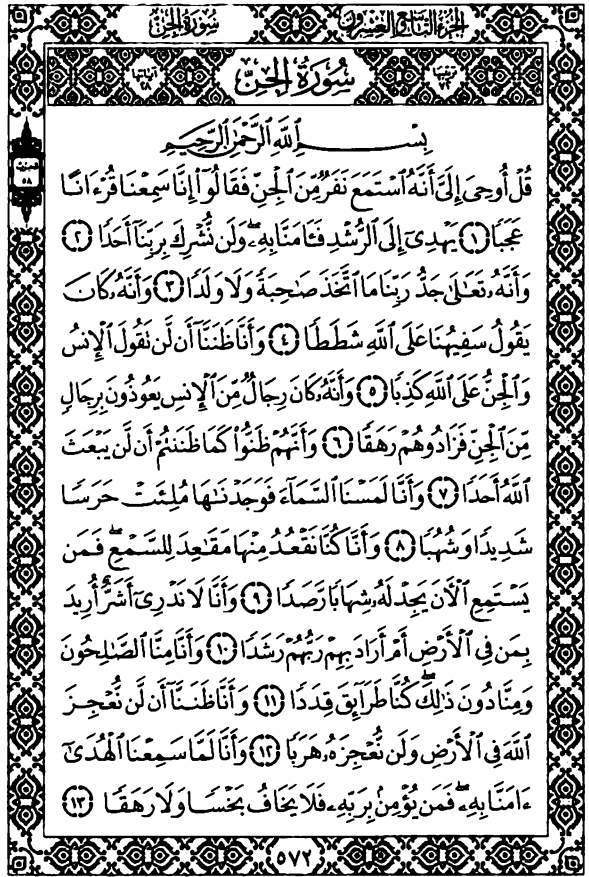 سُورَةُ الجِنّ الجُزْءُ التَّاسِعُ وَالعِشْرُونَ
ترتيبها ٧٢ سُورَةُ الجِنِّ آياتها ٢٨
بِسْمِ اللَّهِ الرَّحْمَٰنِ الرَّحِيمِ
قُلْ أُوحِىَ إِلَىَّ أَنَّهُ ٱسْتَمَعَ نَفَرٌ مِّنَ ٱلْجِنِّ فَقَالُوٓا۟ إِنَّا سَمِعْنَا قُرْءَانًا
عَجَبًا ١ يَهْدِىٓ إِلَى ٱلرُّشْدِ فَـَٔامَنَّا بِهِۦ ۖ وَلَن نُّشْرِكَ بِرَبِّنَآ أَحَدًا ٢
وَأَنَّهُۥ تَعَٰلَىٰ جَدُّ رَبِّنَا مَا ٱتَّخَذَ صَٰحِبَةً وَلَا وَلَدًا ٣ وَأَنَّهُۥ كَانَ
يَقُولُ سَفِيهُنَا عَلَى ٱللَّهِ شَطَطًا ٤ وَأَنَّا ظَنَنَّآ أَن لَّن تَقُولَ ٱلْإِنسُ
وَٱلْجِنُّ عَلَى ٱللَّهِ كَذِبًا ٥ وَأَنَّهُۥ كَانَ رِجَالٌ مِّنَ ٱلْإِنسِ يَعُوذُونَ بِرِجَالٍ
مِّنَ ٱلْجِنِّ فَزَادُوهُمْ رَهَقًا ٦ وَأَنَّهُمْ ظَنُّوا۟ كَمَا ظَنَنتُمْ أَن لَّن يَبْعَثَ
ٱللَّهُ أَحَدًا ٧ وَأَنَّا لَمَسْنَا ٱلسَّمَآءَ فَوَجَدْنَٰهَا مُلِئَتْ حَرَسًا
شَدِيدًا وَشُهُبًا ٨ وَأَنَّا كُنَّا نَقْعُدُ مِنْهَا مَقَٰعِدَ لِلسَّمْعِ ۖ فَمَن
يَسْتَمِعِ ٱلْـَٔانَ يَجِدْ لَهُۥ شِهَابًا رَّصَدًا ٩ وَأَنَّا لَا نَدْرِىٓ أَشَرٌّ أُرِيدَ
بِمَن فِى ٱلْأَرْضِ أَمْ أَرَادَ بِهِمْ رَبُّهُمْ رَشَدًا ١٠ وَأَنَّا مِنَّا ٱلصَّٰلِحُونَ
وَمِنَّا دُونَ ذَٰلِكَ ۖ كُنَّا طَرَآئِقَ قِدَدًا ١١ وَأَنَّا ظَنَنَّآ أَن لَّن نُّعْجِزَ
ٱللَّهَ فِى ٱلْأَرْضِ وَلَن نُّعْجِزَهُۥ هَرَبًا ١٢ وَأَنَّا لَمَّا سَمِعْنَا ٱلْهُدَىٰٓ
ءَامَنَّا بِهِۦ ۖ فَمَن يُؤْمِنۢ بِرَبِّهِۦ فَلَا يَخَافُ بَخْسًا وَلَا رَهَقًا ١٣
٥٧٢